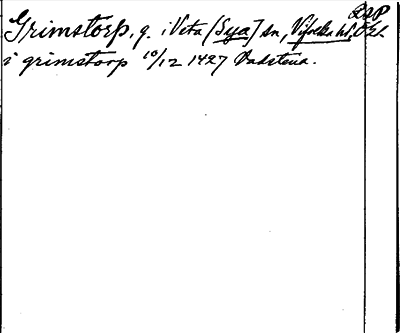 RAP
Grimstorp, g. i Veta [Sya] sn, Vifolka hd, Ögl.
i grimstorp 10/12 1427 Vadstena.